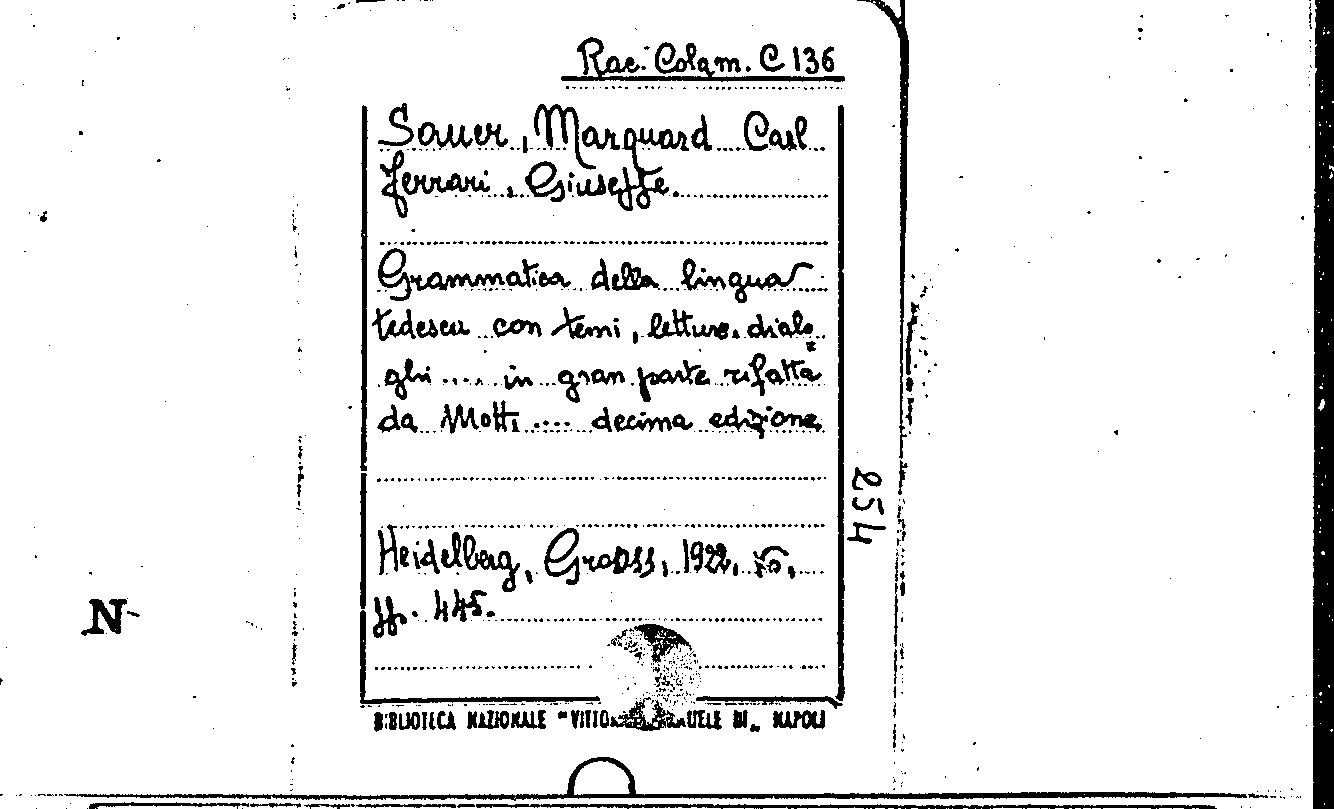 Rac. Colam. C 136
Sauer, Marquard Carl
Ferrari, Giuseppe.
Grammatica della lingua
tedesca con temi, letture, dialo
ghi .... in gran parte rifatta
da Motti .... decima edizione
Heidelberg, Grooss, 1922,
pp. 445.
254
N
BIBLIOTECA NAZIONALE "VITTORIO EMANUELE III" NAPOLI